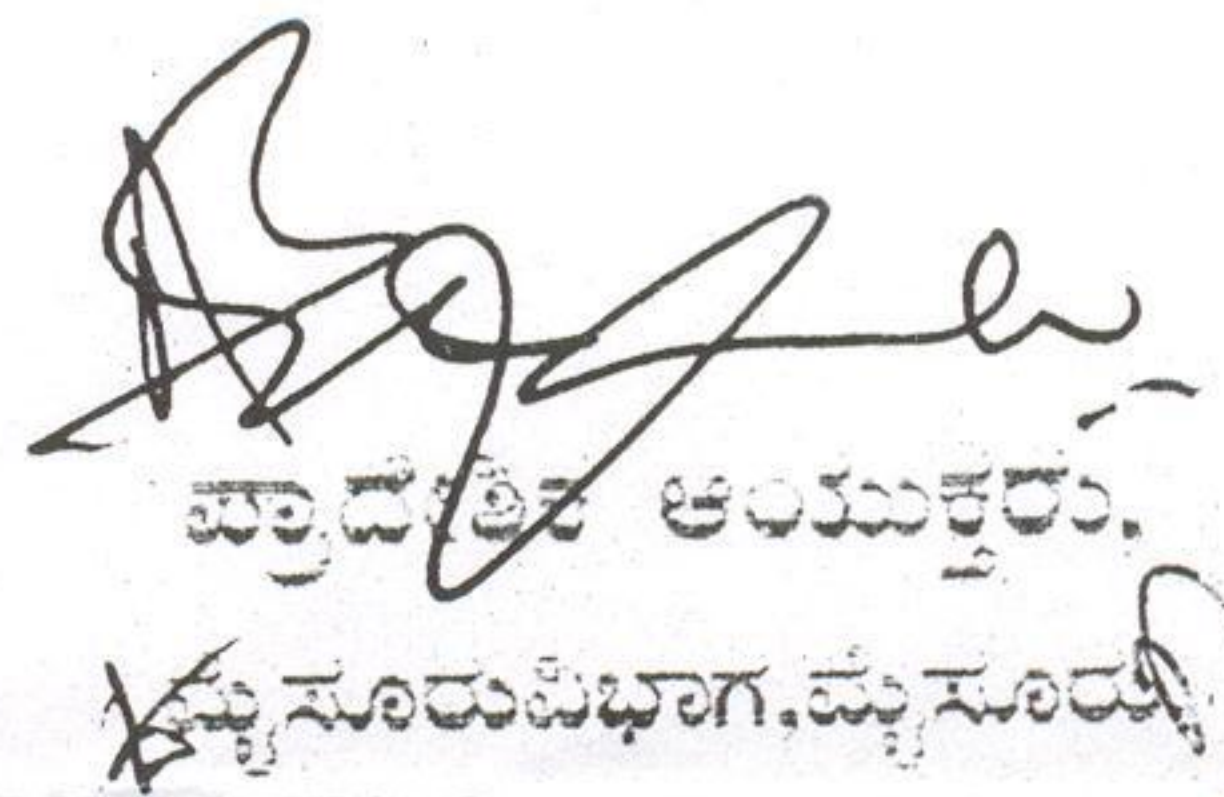 ಪ್ರಾದೇಶಿಕ ಆಯುಕ್ತರು.
ಮೈಸೂರುವಿಭಾಗ,ಮೈಸೂರು